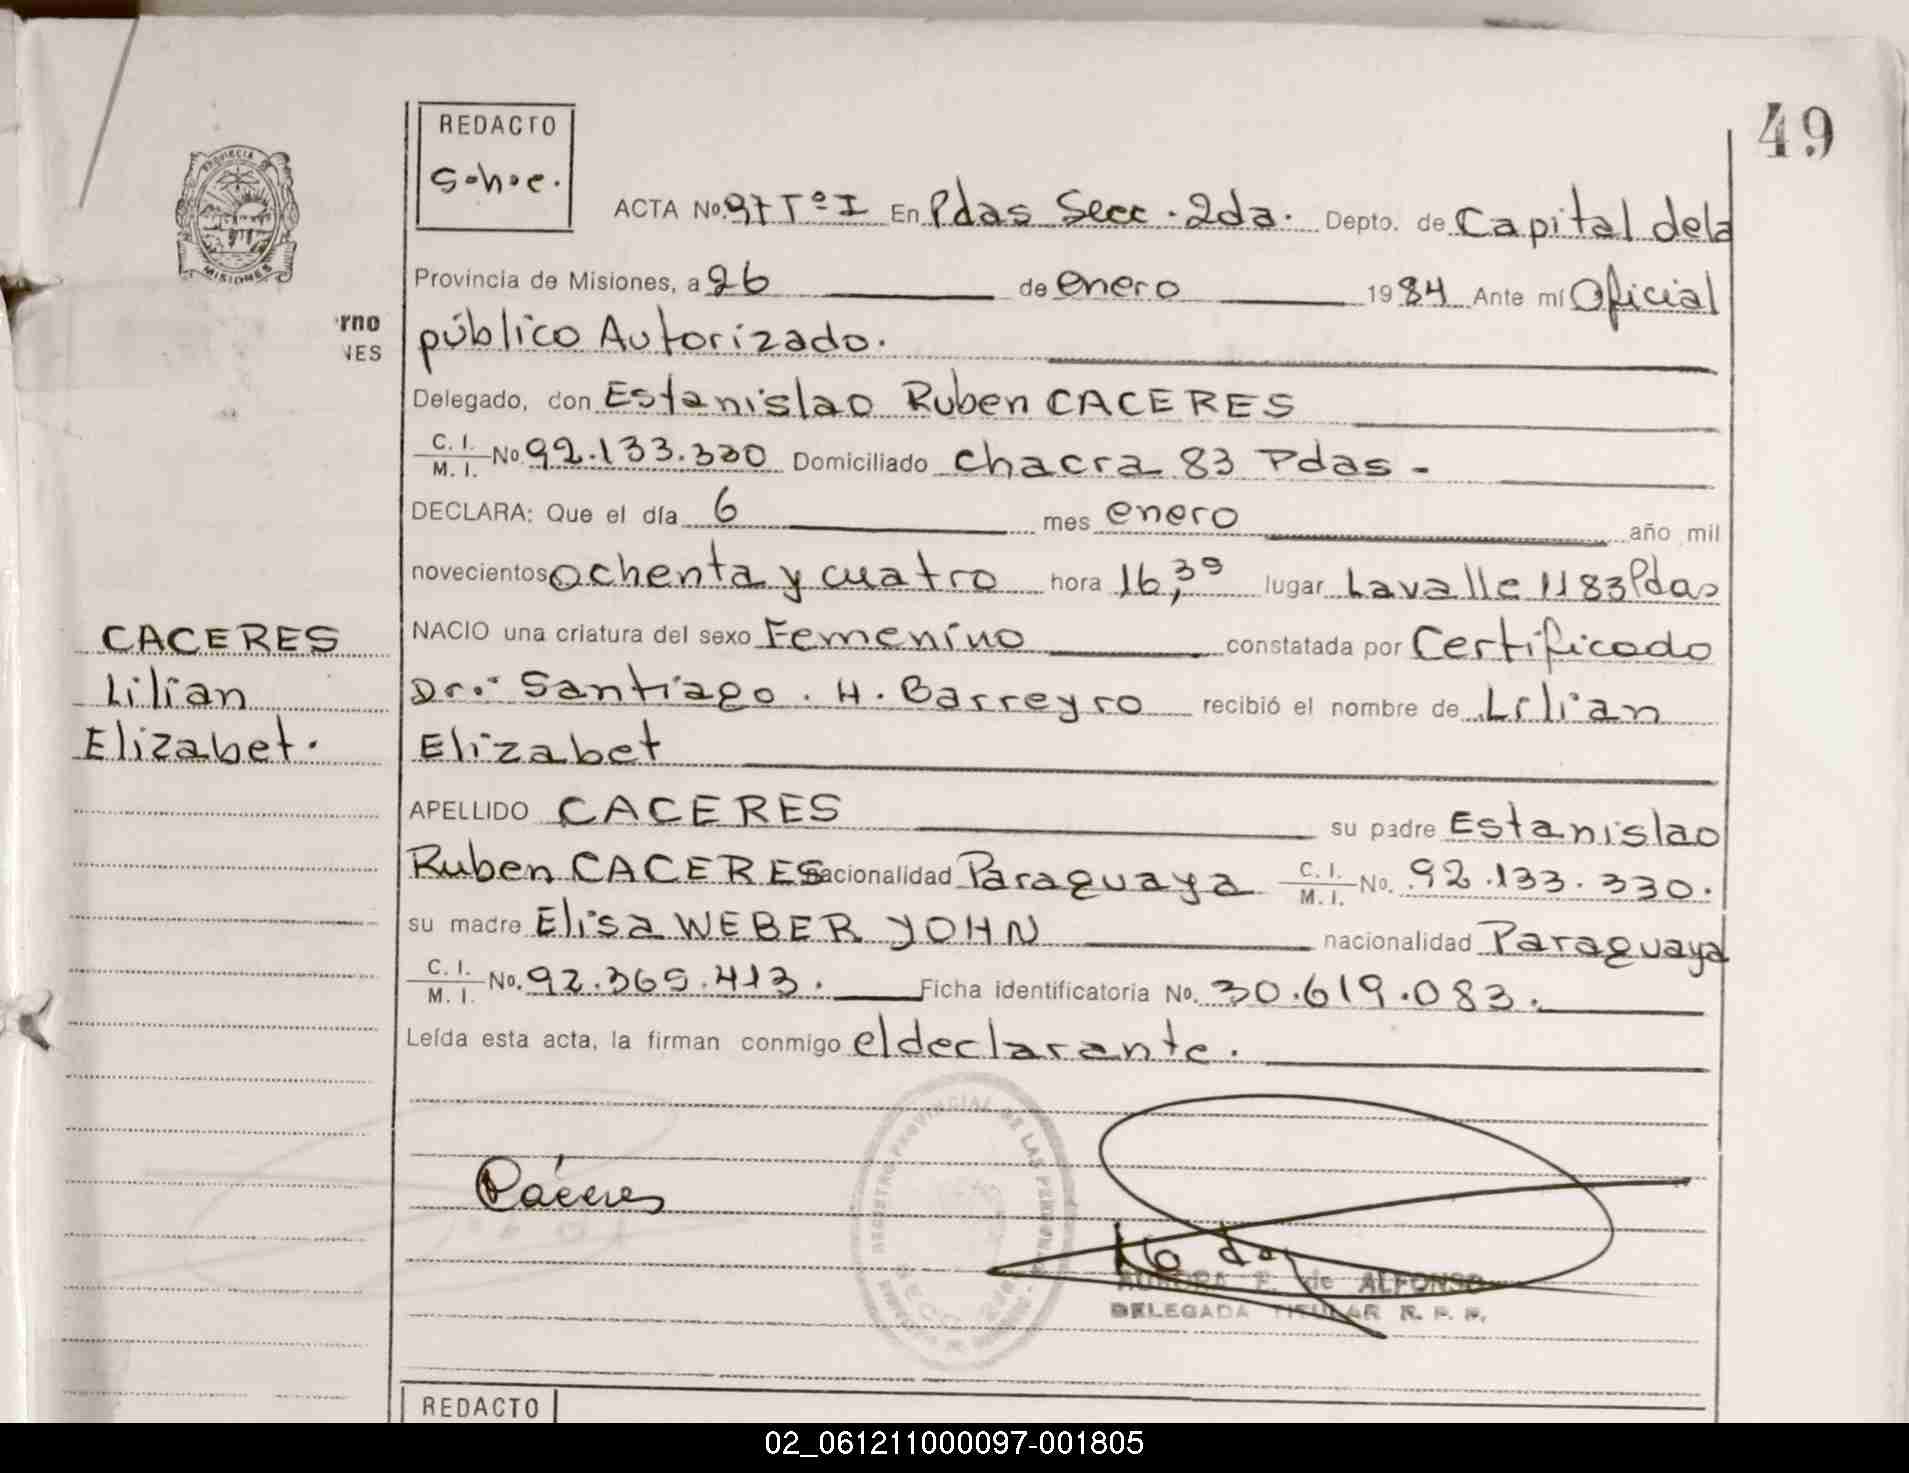 49
REDACTO
S.h.e.
PROVINCIA DE
MISIONES
ACTA No. 97 Tº I En Pdas Secc. 2da. Depto. de Capital dela
Provincia de Misiones, a 26 de enero 1984 Ante mí Oficial
rno
NES
público Autorizado.
Delegado, don Estanislao Ruben CACERES
C. I. M. I. No. 92.133.330 Domiciliado chacra 83 Pdas -
DECLARA: Que el día 6 mes enero año mil
novecientos ochenta y cuatro hora 16,39 lugar Lavalle 1183 Pdas
CACERES
Lilian
Elizabet.
NACIO una criatura del sexo Femenino constatada por Certificado
Dr. Santiago. H. Barreyro recibió el nombre de Lilian
Elizabet
APELLIDO CACERES su padre Estanislao
Ruben CACERES nacionalidad Paraguaya C. I. M. I. No. 92.133.330.
su madre Elisa WEBER YOHN nacionalidad Paraguaya
C. I. M. I. No. 92.369.413. Ficha identificatoria No. 30.619.083.
Leída esta acta, la firman conmigo el declarante.
REGISTRO PROVINCIAL DE LAS PERSONAS
Cáceres
AURORA F. de ALFONSO
DELEGADA TITULAR R. P. P.
REDACTO
02_061211000097-001805